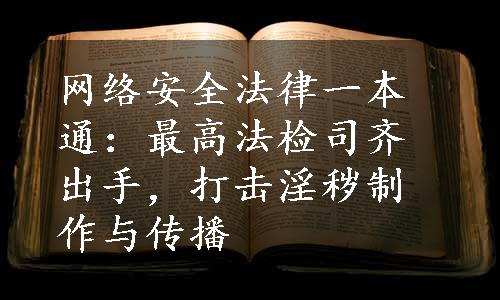 网络安全法律一本
通：最高法检司齐
出手，打击淫秽制
作与传播